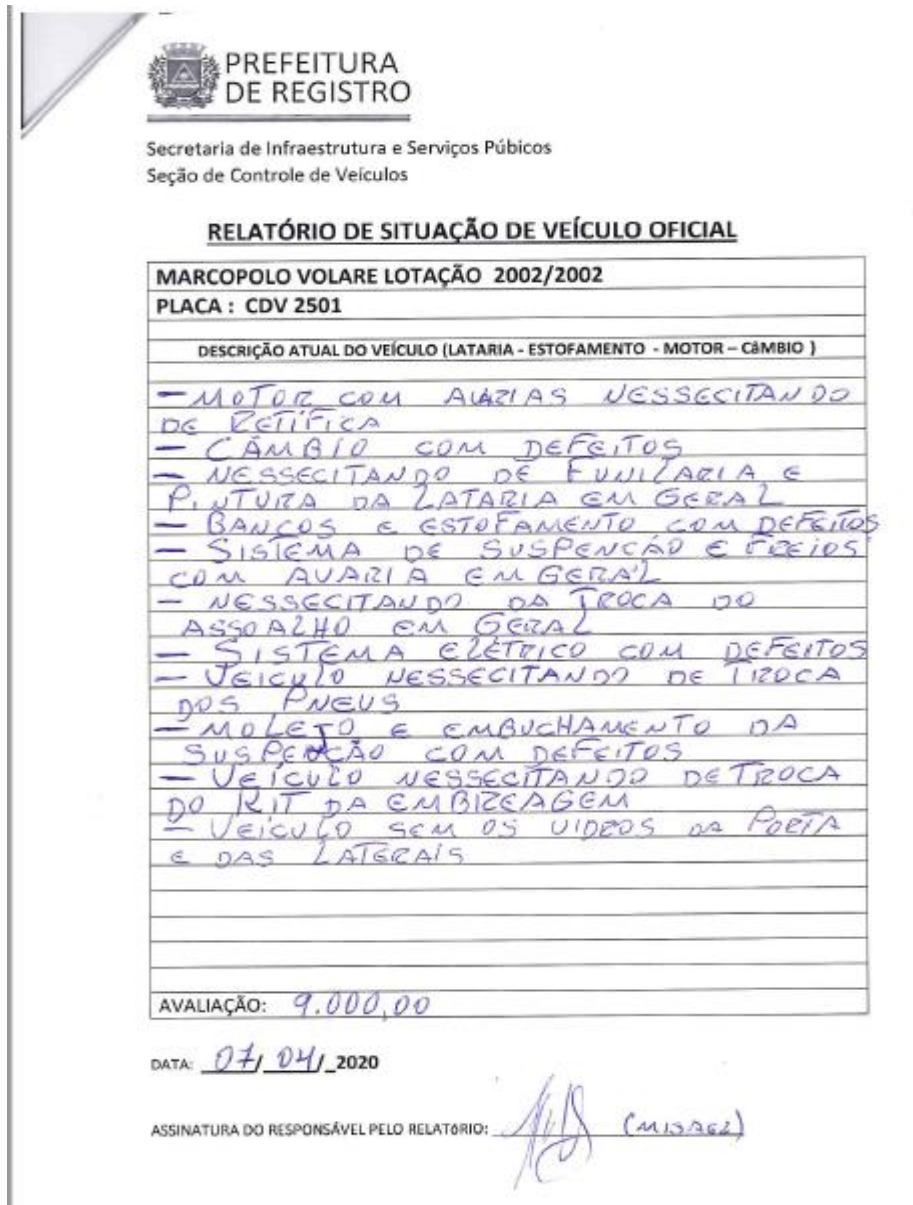 PREFEITURA
DE REGISTRO
Secretaria de Infraestrutura e Serviços Púbicos
Seção de Controle de Veículos
RELATÓRIO DE SITUAÇÃO DE VEÍCULO OFICIAL
MARCOPOLO VOLARE LOTAÇÃO 2002/2002
PLACA : CDV 2501
DESCRIÇÃO ATUAL DO VEÍCULO (LATARIA - ESTOFAMENTO - MOTOR – CâMBIO )
- MOTOR COM AVARIAS NESSECITANDO
DE RETÍFICA
- CÂMBIO COM DEFEITOS
- NESSECITANDO DE FUNILARIA E
PINTURA DA LATARIA EM GERAL
- BANCOS E ESTOFAMENTO COM DEFEITOS
- SISTEMA DE SUSPENCÃO E FREIOS
COM AVARIA EM GERAL
- NESSECITANDO DA TROCA DO
ASSOALHO EM GERAL
- SISTEMA ELÉTRICO COM DEFEITOS
- VEICULO NESSECITANDO DE TROCA
DOS PNEUS
- MOLEJO E EMBUCHAMENTO DA
SUSPENCÃO COM DEFEITOS
- VEÍCULO NESSECITANDO DE TROCA
DO KIT DA EMBREAGEM
- VEÍCULO SEM OS VIDROS DA PORTA
E DAS LATERAIS
AVALIAÇÃO: 9.000,00
DATA: 07/ 04/_2020
ASSINATURA DO RESPONSÁVEL PELO RELATóRIO: (MISAEL)